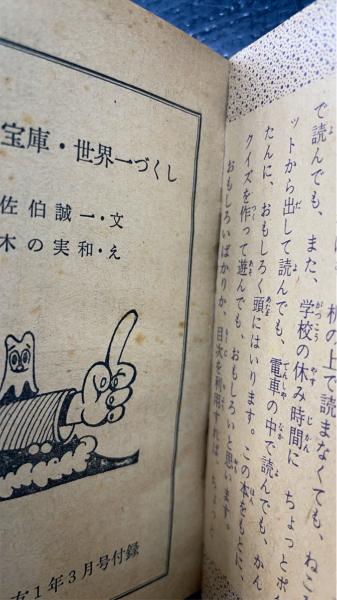 宝庫・世界一づくし
佐伯誠一・文
木の実和・え
1年3月号付録
机の上で読まなくても、ねころ
で読んでも、また、学校の休み時間に ちょっとポケ
ットから出して読んでも、電車の中で読んでも、かん
たんに、おもしろく頭にはいります。この本をもとに、
クイズを作って遊んでも、おもしろいと思います。
おもしろいばかりか、目次を利用すれば、ちょっと